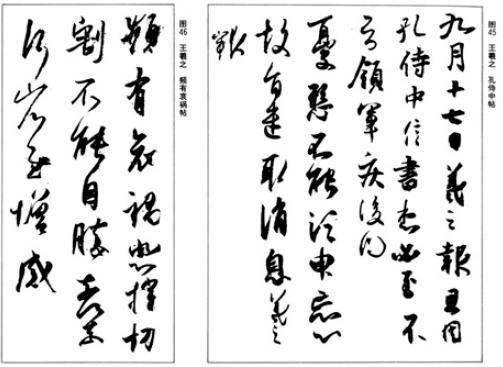 图45 王羲之 孔侍中帖
九月十七日羲之報且因
孔侍中信書想必至不
知領軍疾後問
憂懸不能須臾忘心
故旨遣取消息羲之
報
图46 王羲之 频有哀祸帖
頻有哀禍悲摧切
割不能自勝奈何
省慰增感